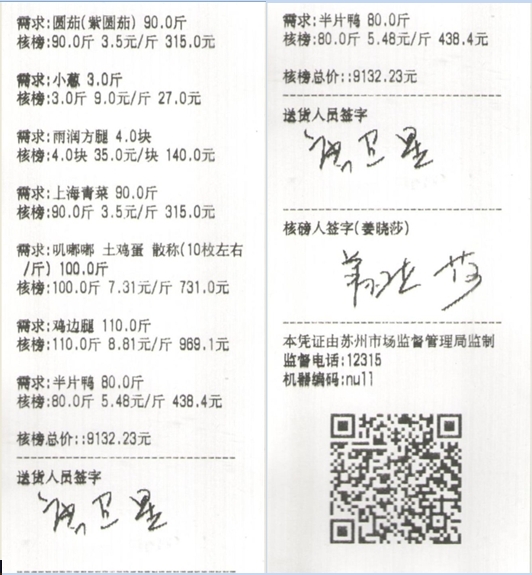 需求:圆茄(紫圆茄) 90.0斤
核榜:90.0斤 3.5元/斤 315.0元
需求:小葱 3.0斤
核榜:3.0斤 9.0元/斤 27.0元
需求:雨润方腿 4.0块
核榜:4.0块 35.0元/块 140.0元
需求:上海青菜 90.0斤
核榜:90.0斤 3.5元/斤 315.0元
需求:叽嘟嘟 土鸡蛋 散称(10枚左右
/斤) 100.0斤
核榜:100.0斤 7.31元/斤 731.0元
需求:鸡边腿 110.0斤
核榜:110.0斤 8.81元/斤 969.1元
需求:半片鸭 80.0斤
核榜:80.0斤 5.48元/斤 438.4元
核榜总价::9132.23元
送货人员签字
需求:半片鸭 80.0斤
核榜:80.0斤 5.48元/斤 438.4元
核榜总价::9132.23元
送货人员签字
核磅人签字(姜晓莎)
姜晓莎
本凭证由苏州市场监督管理局监制
监督电话:12315
机器编码:null